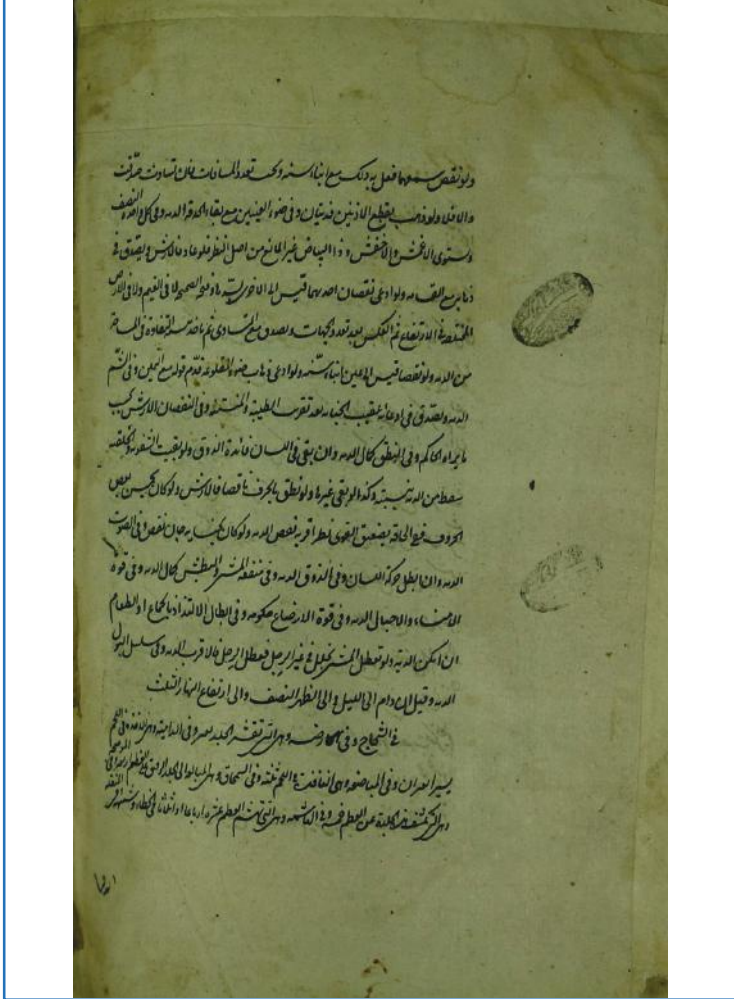 ولو نقص سمعهما فعل به ذلك مع ابناء سنه ويجب تعدد المسافات فان تساوت صدقت
والا فلا ولو ذهب بقطع الاذنين فديتان وفي ضوء العينين مع بقاء الحدقة الديه وفي كل واحده النصف
ويستوي الاعمش والاخفش وذا البياض غير المانع من اصل النظر فلو عاد فالارش ويصدق في
ذهابه مع القسامه ولو ادعى نقصان احديهما قيس الى الاخرى بسد هذه وفتح الصحيحه لا في الغيم ولا في الارض
المختلفة في الارتفاع ثم العكس بعد تعدد الجهات ويصدق مع التساوي ثم ياخذ بنسبة التفاوت في المساحه
من الديه ولو نقصا قيس الى عين ابناء سنه ولو ادعى ذهاب ضوء المقلوعه قدم قوله مع اليمين وفي الشم
الديه ويصدق في ادعائه عقيب الجنايه بعد تقريب الطيبة والمنتنة وفي النقصان الارش بحسب
ما يراه الحاكم وفي النطق كمال الديه وان بقي في اللسان فائدة الذوق ولو بقيت الشفويه والحلقيه
سقط من الديه بنسبته وكذا لو بقي غيرها ولو نطق بالحرف ناقصا فالارش ولو كان يحسن بعض
الحروف ففي الحاقه بضعيف القوى نظر اقربه نقص الديه ولو كان بجنايه جان نقص وفي الصوت
الديه وان ابطل حركة اللسان وفي الذوق الديه وفي منفعة المشي والبطش كمال الديه وفي قوة
الامناء والاحبال الديه وفي قوة الارضاع حكومه وفي ابطال الالتذاذ بالجماع او الطعام
ان امكن الدية ولو تعطل المشي بخلل في غير الرجل فعطل الرجل فالاقرب الديه وفي سلس البول
الديه وقيل ان دام الى الليل والى الظهر النصف والى ارتفاع النهار الثلث
في الشجاج وفي الحارصه وهي التي تقشر الجلد بعير وفي الداميه وهي الاخذه في اللحم
يسيرا بعيران وفي الباضعه وهي النافذة في اللحم ثلثه وفي السمحاق وهي البالغة الى الجلد الرقيق على العظم اربعه وفي الموضحه
وهي التي تكشف الجلدة عن العظم خمسه وفي الهاشمه وهي التي تهشم العظم عشره ارباعا او اثلاثا في الخطاء وشبهه وفي المنقله